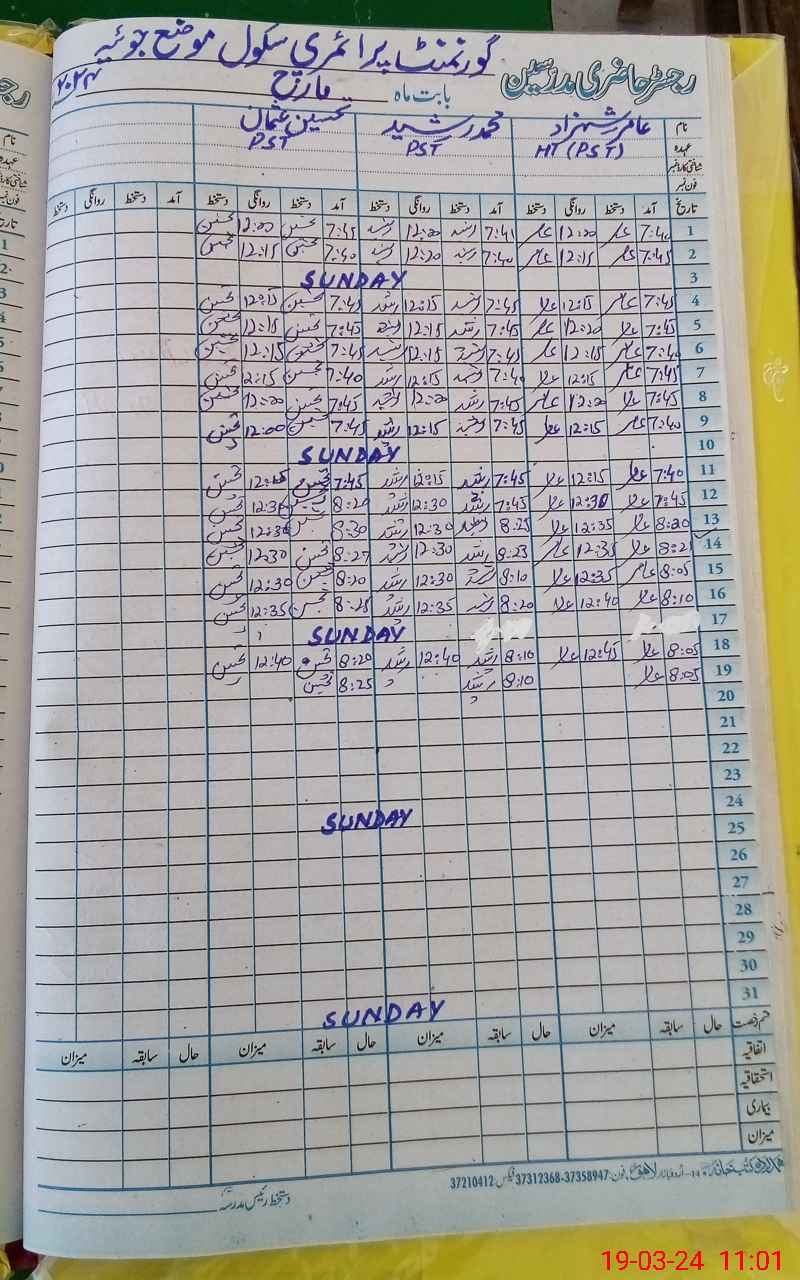 گورنمنٹ پرائمری سکول موضع جوئیہ
رجسٹر حاضری مدرسین بابت ماہ مارچ ۲۰۲۴
نام عامر شہزاد محمد رشید تحسین عثمان
عہدہ HT (PST) PST PST
شناختی کارڈ نمبر
فون نمبر
تاریخ آمد دستخط روانگی دستخط آمد دستخط روانگی دستخط آمد دستخط روانگی دستخط آمد دستخط روانگی دستخط
1 7:40 عامر 12:00 عامر 7:41 رشید 12:00 رشید 7:45 تحسین 12:00 تحسین
2 7:45 عامر 12:15 عامر 7:40 رشید 12:20 رشید 7:40 تحسین 12:15 تحسین
3 SUNDAY
4 7:45 عامر 12:15 عامر 7:45 رشید 12:15 رشید 7:45 تحسین 12:15 تحسین
5 7:45 عامر 12:20 عامر 7:45 رشید 12:15 رشید 7:45 تحسین 12:15 تحسین
6 7:40 عامر 12:15 عامر 7:45 رشید 12:15 رشید 7:45 تحسین 12:15 تحسین
7 7:45 عامر 12:15 عامر 7:40 رشید 12:15 رشید 7:40 تحسین 12:15 تحسین
8 7:45 عامر 12:00 عامر 7:45 رشید 12:00 رشید 7:45 تحسین 12:00 تحسین
9 7:40 عامر 12:15 عامر 7:45 رشید 12:15 رشید 7:45 تحسین 12:00 تحسین
10 SUNDAY
11 7:40 عامر 12:15 عامر 7:45 رشید 12:15 رشید 7:45 تحسین 12:15 تحسین
12 7:45 عامر 12:30 عامر 7:45 رشید 12:30 رشید 8:20 تحسین 12:30 تحسین
13 8:20 عامر 12:35 عامر 8:25 رشید 12:30 رشید 8:30 تحسین 12:30 تحسین
14 8:21 عامر 12:35 عامر 8:23 رشید 12:30 رشید 8:27 تحسین 12:30 تحسین
15 8:05 عامر 12:35 عامر 8:10 رشید 12:30 رشید 8:20 تحسین 12:30 تحسین
16 8:10 عامر 12:40 عامر 8:20 رشید 12:35 رشید 8:25 تحسین 12:35 تحسین
17 SUNDAY
18 8:05 عامر 12:45 عامر 8:10 رشید 12:40 رشید 8:20 تحسین 12:40 تحسین
19 8:05 عامر 8:10 رشید 8:25 تحسین
20
21
22
23
24 SUNDAY
25
26
27
28
29
30
31 SUNDAY
قسم رخصت حال سابقہ میزان حال سابقہ میزان حال سابقہ میزان حال سابقہ میزان
اتفاقیہ
استحقاقیہ
بیماری
میزان
اردو بازار لاہور۔ فون: 37358947-37312368 فیکس: 37210412
دستخط رئیس مدرسہ
19-03-24 11:01